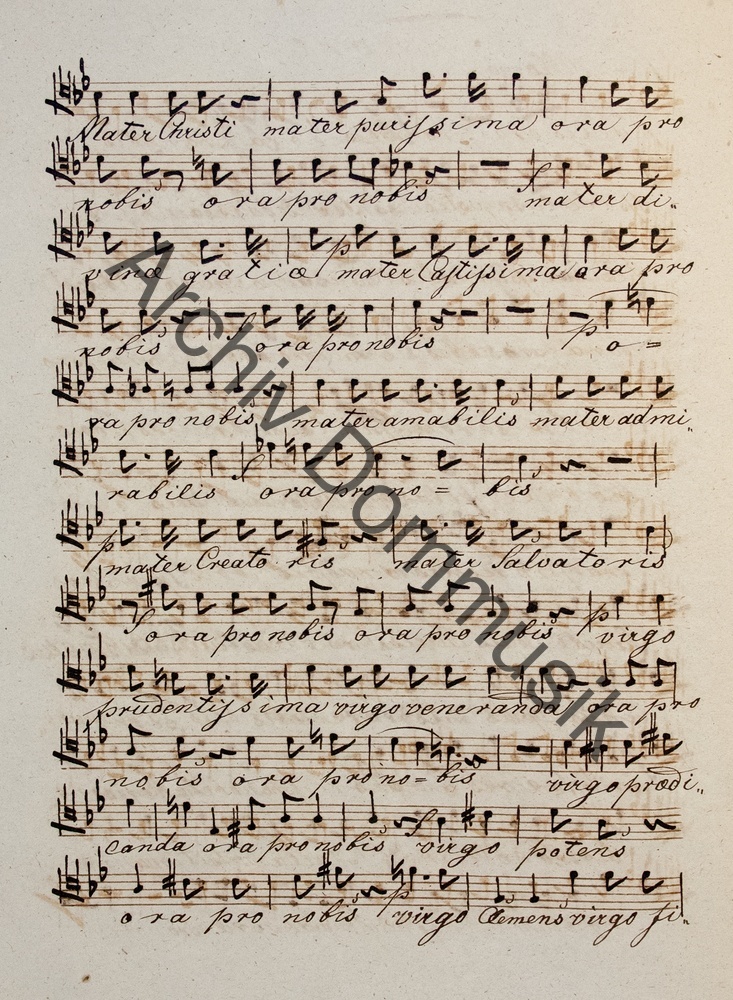 Mater Christi mater purissima ora pro
nobis ora pro nobis mater di„
vinæ gratiæ mater Castissima ora pro
nobis ora pro nobis o=
ra pro nobis mater amabilis mater admi„
rabilis ora pro no= bis
mater Creato ris mater Salvatoris
ora pro nobis ora pro nobis virgo
prudentissima virgo veneranda ora pro
nobis ora pro no= bis virgo prædi„
canda ora pro nobis virgo potens
ora pro nobis virgo Clemens virgo fi„
Archiv Dommusik